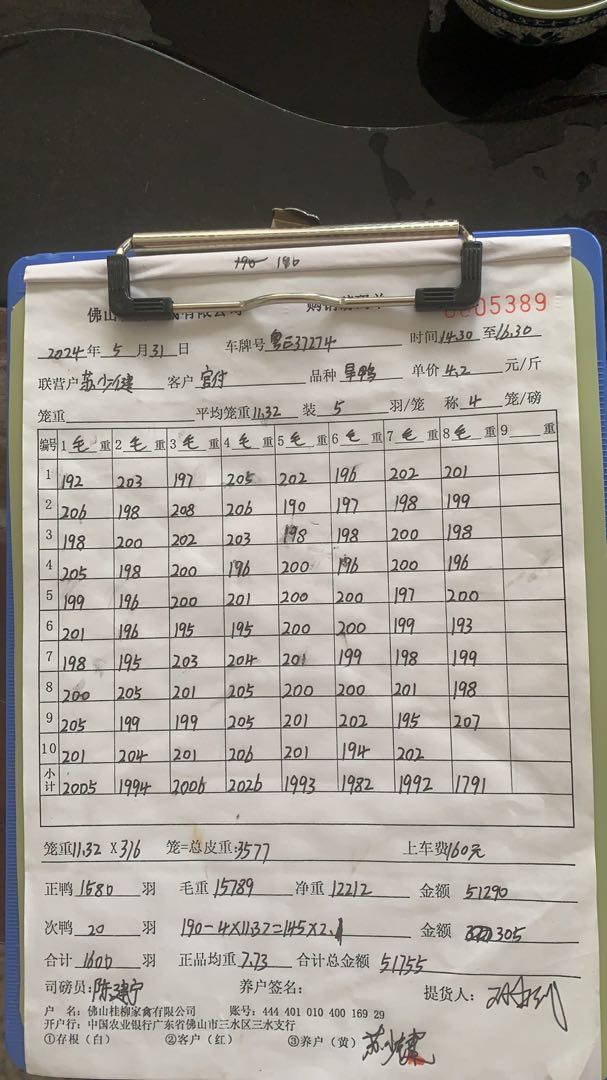 190 186
佛山 有限公司 购销 单 0005389
2024年 5 月 31 日 车牌号 粤E37274 时间 14.30 至 16.30
联营户 客户 品种 旱鸭 单价 4.2 元/斤
笼重 平均笼重 11.32 装 5 羽/笼 称 4 笼/磅
编号 1 毛 重 2 毛 重 3 毛 重 4 毛 重 5 毛 重 6 毛 重 7 毛 重 8 毛 重 9 重
1 192 203 197 205 202 196 202 201
2 206 198 208 206 190 197 198 199
3 198 200 202 203 198 198 200 198
4 205 198 200 196 200 196 200 196
5 199 196 200 201 200 200 197 200
6 201 196 195 195 200 200 199 193
7 198 195 203 204 201 199 198 199
8 200 205 201 205 200 200 201 198
9 205 199 199 205 201 202 195 207
10 201 204 201 206 201 194 202
小计 2005 1994 2006 2026 1993 1982 1992 1791
笼重 11.32 X 316 笼=总皮重: 3577 上车费 160元
正鸭 1580 羽 毛重 15789 净重 12212 金额 51290
次鸭 20 羽 190-4×11.32=145×2.1 金额 305
合计 1600 羽 正品均重 7.73 合计总金额 51755
司磅员: 陈建宁 养户签名: 提货人:
户 名: 佛山桂柳家禽有限公司 账号: 444 401 010 400 169 29
开户行: 中国农业银行广东省佛山市三水区三水支行
①存根（白） ②客户（红） ③养户（黄）